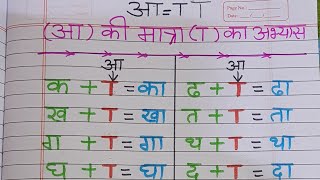 Page No.
Date
आ=ा ा
(आ) की मात्रा (ा) का अभ्यास
आ आ
क + ा = का ढ + ा = ढा
ख + ा = खा त + ा = ता
ग + ा = गा थ + ा = था
घ + ा = घा द + ा = दा